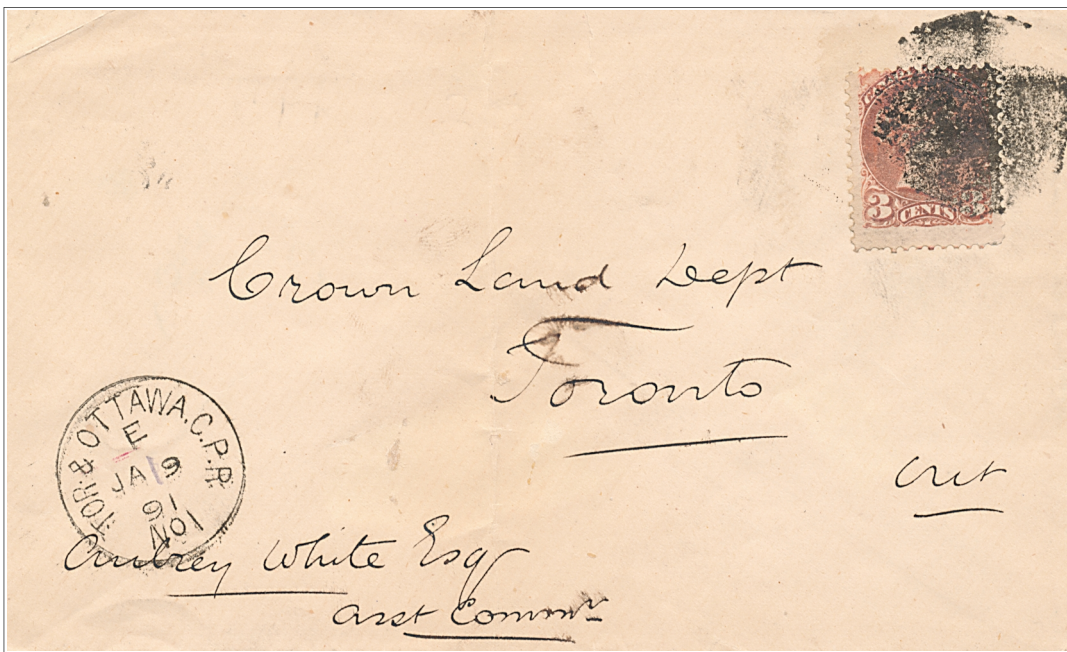 3 CENTS
Crown Land Dept
Toronto
Ont
TOR. & OTTAWA. C.P.R.
E
JA 9
91
NO 1
Aubrey White Esq
Asst Commr